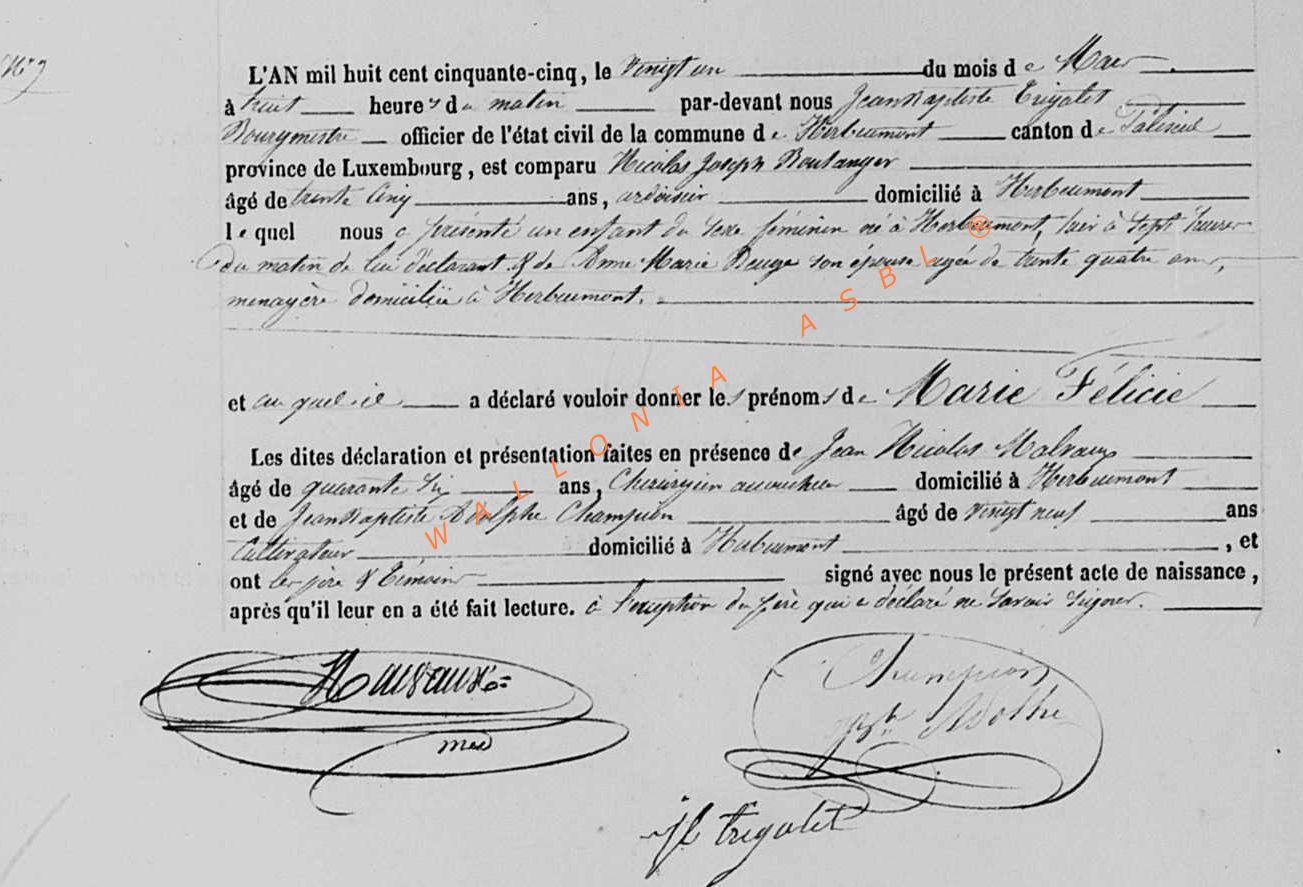 N° 7
L'AN mil huit cent cinquante-cinq, le vingt un du mois de Mars
à huit heures du matin par-devant nous Jean Baptiste Trigalet
Bourgmestre officier de l'état civil de la commune de Herbeumont canton de Paliseul
province de Luxembourg, est comparu Nicolas Joseph Boulanger
âgé de trente cinq ans, ardoisier domicilié à Herbeumont
lequel nous a présenté un enfant du sexe féminin né à Herbeumont, hier à sept heures
du matin de lui déclarant & de Anne Marie son épouse agée de trente quatre ans,
menagère domiciliée à Herbeumont.
et auquel il a déclaré vouloir donner les prénoms de Marie Félicie
Les dites déclaration et présentation faites en présence de Jean Nicolas
âgé de quarante six ans, Chirurgien accoucheur domicilié à Herbeumont
et de Jean Baptiste Adolphe Champion âgé de vingt neuf ans
Cultivateur domicilié à Herbeumont, et
ont les père & témoins signé avec nous le présent acte de naissance,
après qu'il leur en a été fait lecture. à l'exception du père qui a déclaré ne savoir signer.
Champion
Adolphe
Trigalet
WALLONIA ASBL ®